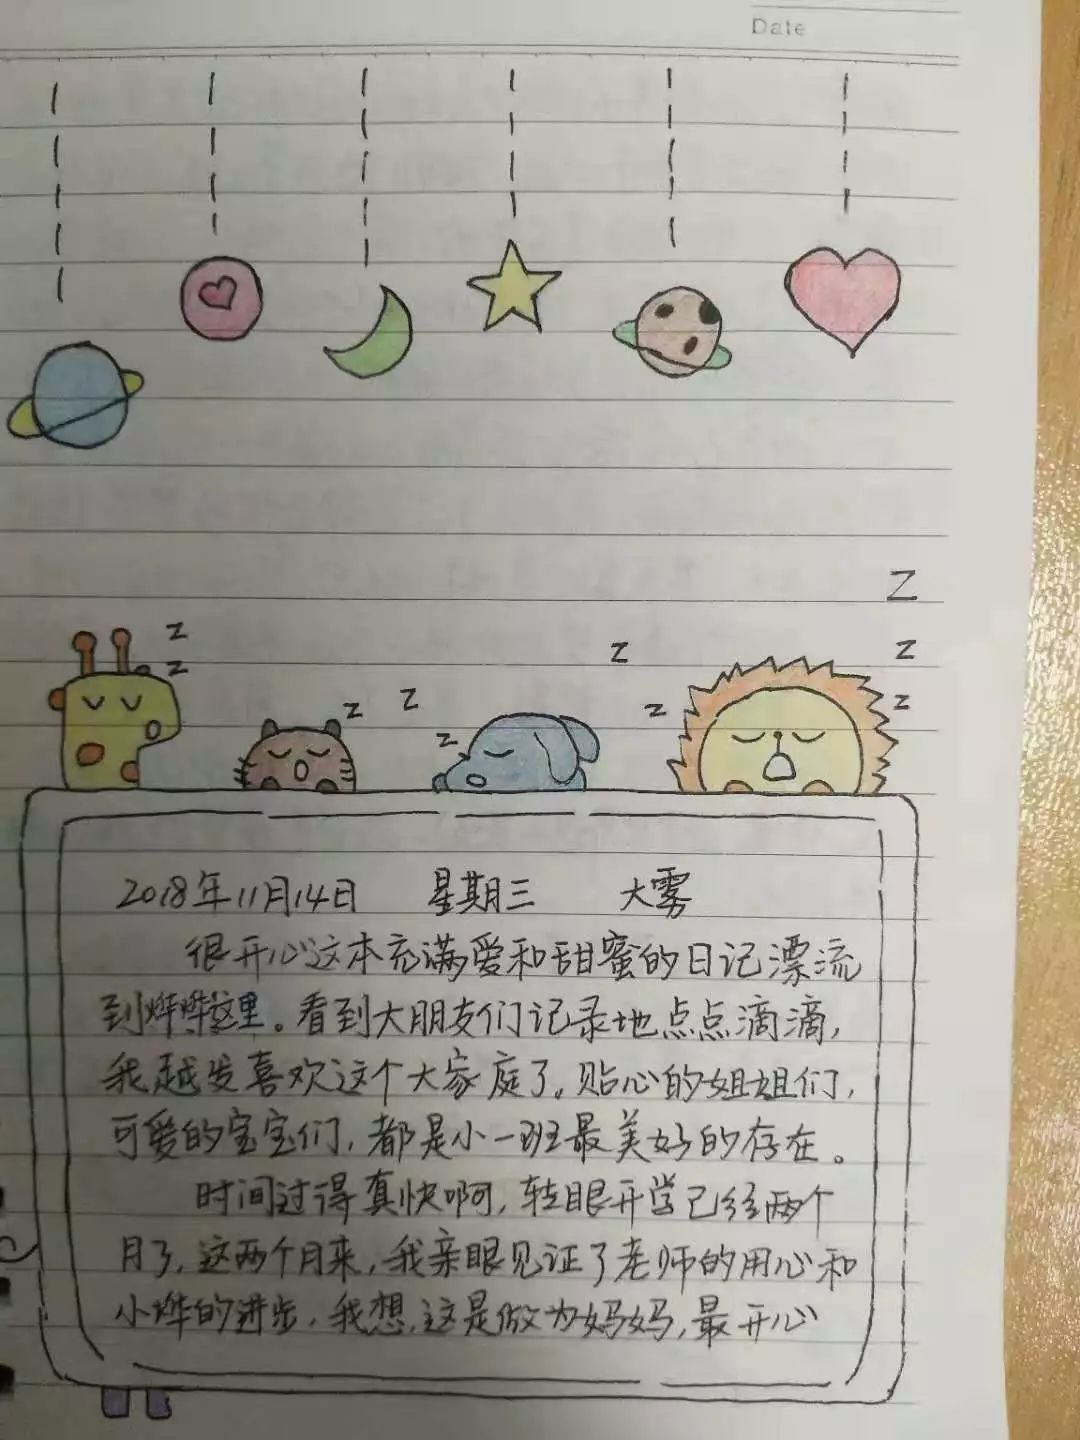 Date
Z
z
z
z
z
z
z
z
z
z
2018年11月14日 星期三 大雾
很开心这本充满爱和甜蜜的日记漂流
到烨烨这里。看到大朋友们记录地点点滴滴，
我越发喜欢这个大家庭了。贴心的姐姐们，
可爱的宝宝们，都是小一班最美好的存在。
时间过得真快啊，转眼开学已经两个
月了，这两个月来，我亲眼见证了老师的用心和
小烨的进步，我想，这是做为妈妈，最开心